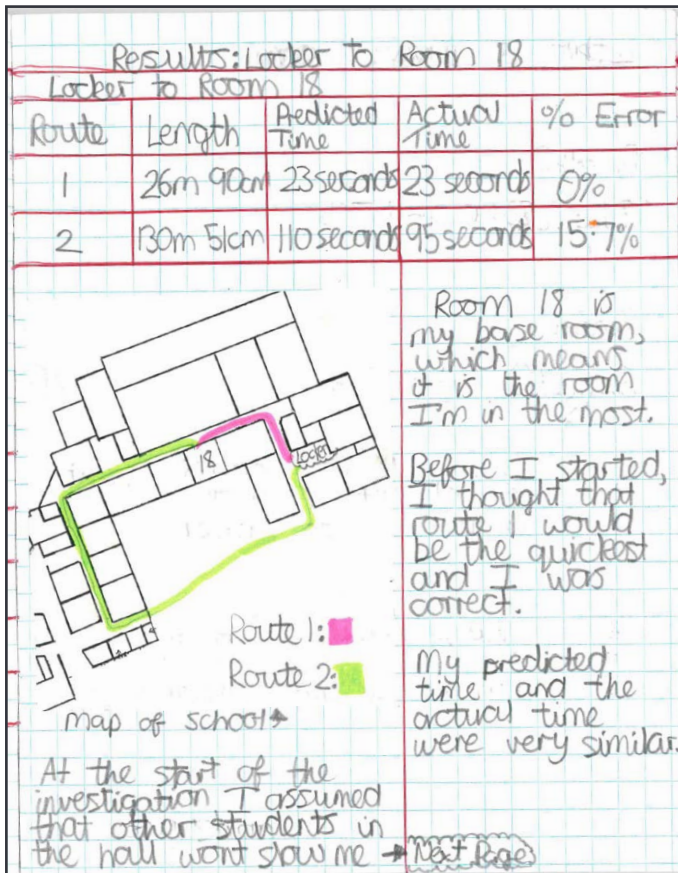 Results: Locker to Room 18
Locker to Room 18
Route Length Predicted Time Actual Time % Error
1 26m 90cm 23 seconds 23 seconds 0%
2 130m 51cm 110 seconds 95 seconds 15.7%
18
Locker
Route 1:
Route 2:
map of school
At the start of the
investigation I assumed
that other students in
the hall wont slow me
Room 18 is
my base room,
which means
it is the room
I'm in the most.
Before I started,
I thought that
route 1 would
be the quickest
and I was
correct.
My predicted
time and the
actual time
were very similar.
Next Page